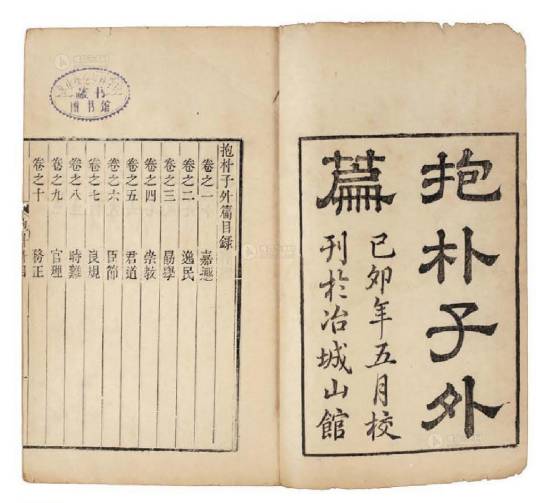 抱朴子外
篇
己卯年五月校
刊於冶城山館
抱朴子外篇目錄
卷之一 嘉遯
卷之二 逸民
卷之三 勗學
卷之四 崇敎
卷之五 君道
卷之六 臣節
卷之七 良規
卷之八 時難
卷之九 官理
卷之十 務正
藏书
图书馆